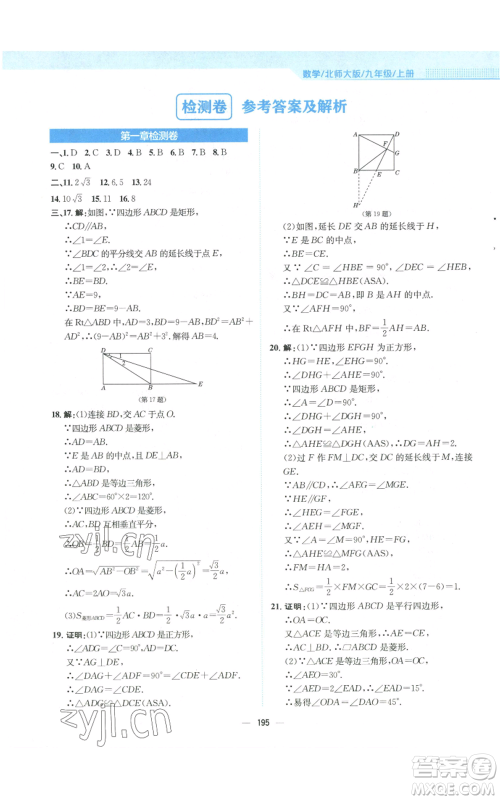 数学/北师大版/九年级/上册
检测卷 参考答案及解析
第一章检测卷
一、1. D 2. C 3. D 4. D 5. A 6. B 7. D 8. B
9. C 10. A
二、11. 2√3 12. 6.5 13. 24
14. 10√3 15. 11 16. 8
三、17. 解:如图,∵四边形 ABCD 是矩形,
∴CD//AB,
∴∠1=∠E.
∵∠BDC 的平分线交 AB 的延长线于点 E,
∴∠1=∠2,
∴∠2=∠E,
∴BE=BD.
∵AE=9,
∴BD=BE=9-AB.
在 Rt△ABD 中,AD=3,BD²=AD²+AB²,
∴(9-AB)²=3²+AB²,解得 AB=4.
D C
1
2
A B E
(第 17 题)
18. 解:(1)连接 BD,交 AC 于点 O.
∵四边形 ABCD 是菱形,
∴AD=AB.
∵E 是 AB 的中点,DE⊥AB,
∴AD=BD,
∴△ABD 是等边三角形,
∴∠ABC=60°×2=120°.
(2)∵四边形 ABCD 是菱形,
∴AC,BD 互相垂直平分,
∴OA=√(AB²-OB²)=√(a²-(1/2 a)²)=√3/2 a,
∴AC=2AO=√3a.
(3)S菱形ABCD=1/2 AC·BD=1/2·√3a·a=√3/2 a².
19. 证明:(1)∵四边形 ABCD 是正方形,
∴∠ADG=∠C=90°,AD=DC.
又∵AG⊥DE,
∴∠DAG+∠ADF=90°=∠CDE+∠ADF,
∴∠DAG=∠CDE,
∴△ADG≌△DCE(ASA).
A D
F
G
B E C
H
(第 19 题)
(2)如图,延长 DE 交 AB 的延长线于 H,
∵E 是 BC 的中点,
∴BE=CE.
又∵∠C=∠HBE=90°,∠DEC=∠HEB,
∴△DCE≌△HBE(ASA),
∴BH=DC=AB,即 B 是 AH 的中点.
又∵∠AFH=90°,
∴Rt△AFH 中,BF=1/2 AH=AB.
20. 解:(1)∵四边形 EFGH 为正方形,
∴HG=HE,∠EHG=90°.
∵四边形 ABCD 是矩形,
∴∠A=∠D=90°,
∴∠DHG+∠AHE=90°.
∵∠DHG+∠DGH=90°,
∴∠DGH=∠AHE,
∴△AHE≌△DGH(AAS).
(2)过 F 作 FM⊥DC,交 DC 延长线于 M,连接
GE.
∵AB//CD,
∴∠AEG=∠MGE.
∵HE//GF,
∴∠HEG=∠FGE,
∴∠AEH=∠FGM.
又∵∠A=∠M=90°,HE=FG,
∴△AEH≌△MGF(AAS),
∴FM=HA=2,
21. 证明:(1)∵四边形 ABCD 是平行四边形,
∴OA=OC.
∵△ACE 是等边三角形,
∴OE⊥AC,∴BD⊥AC,∴▱ABCD 是菱形.
(2)∵△ACE 是等边三角形,OE⊥AC,
∴∠AEO=30°.
∵∠AED=2∠EAD,∴∠EAD=15°,
∴易得∠ODA=∠DAO=45°,∴OA=DO.
195
zyjl.cn
zyjl.cn
答案圈
MXQE.COM